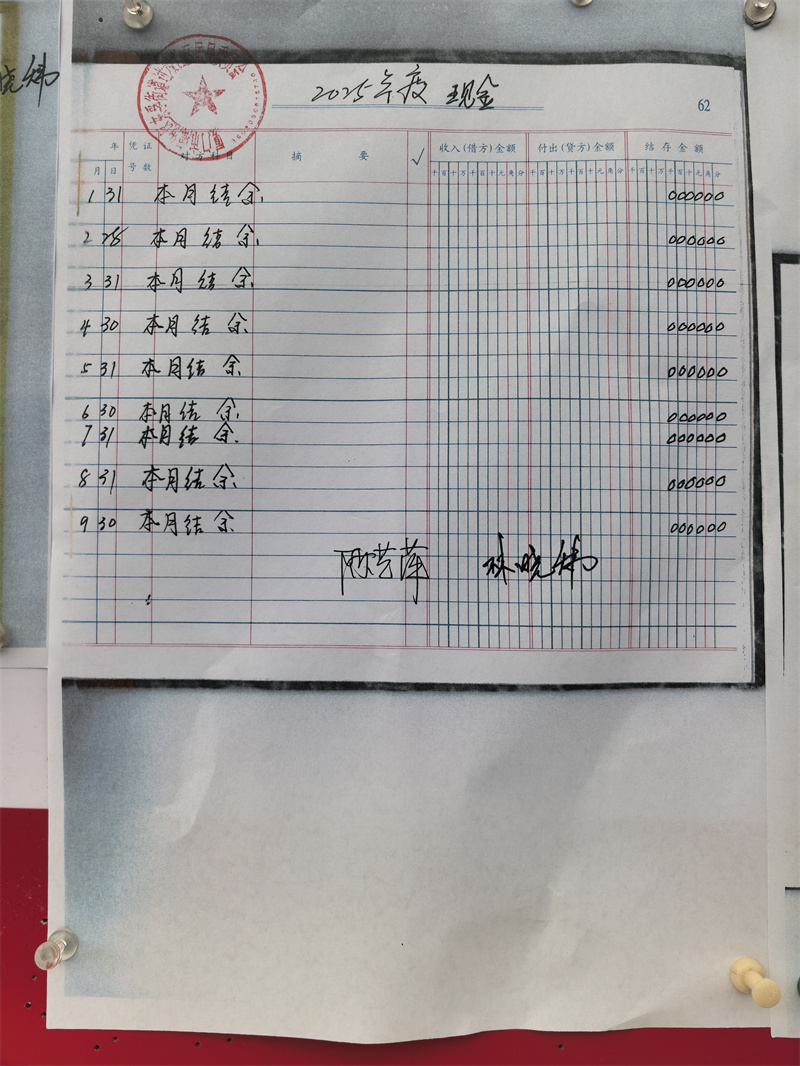 晓炜
2025年度 现金
62
年 凭证 对方科目 摘要 √ 收入(借方)金额 付出(贷方)金额 结存金额
月 日 号数 千百十万千百十元角分 千百十万千百十元角分 千百十万千百十元角分
1 31 本月结余 000000
2 28 本月结余 000000
3 31 本月结余 000000
4 30 本月结余 000000
5 31 本月结余 000000
6 30 本月结余 000000
7 31 本月结余 000000
8 31 本月结余 000000
9 30 本月结余 000000
林晓炜